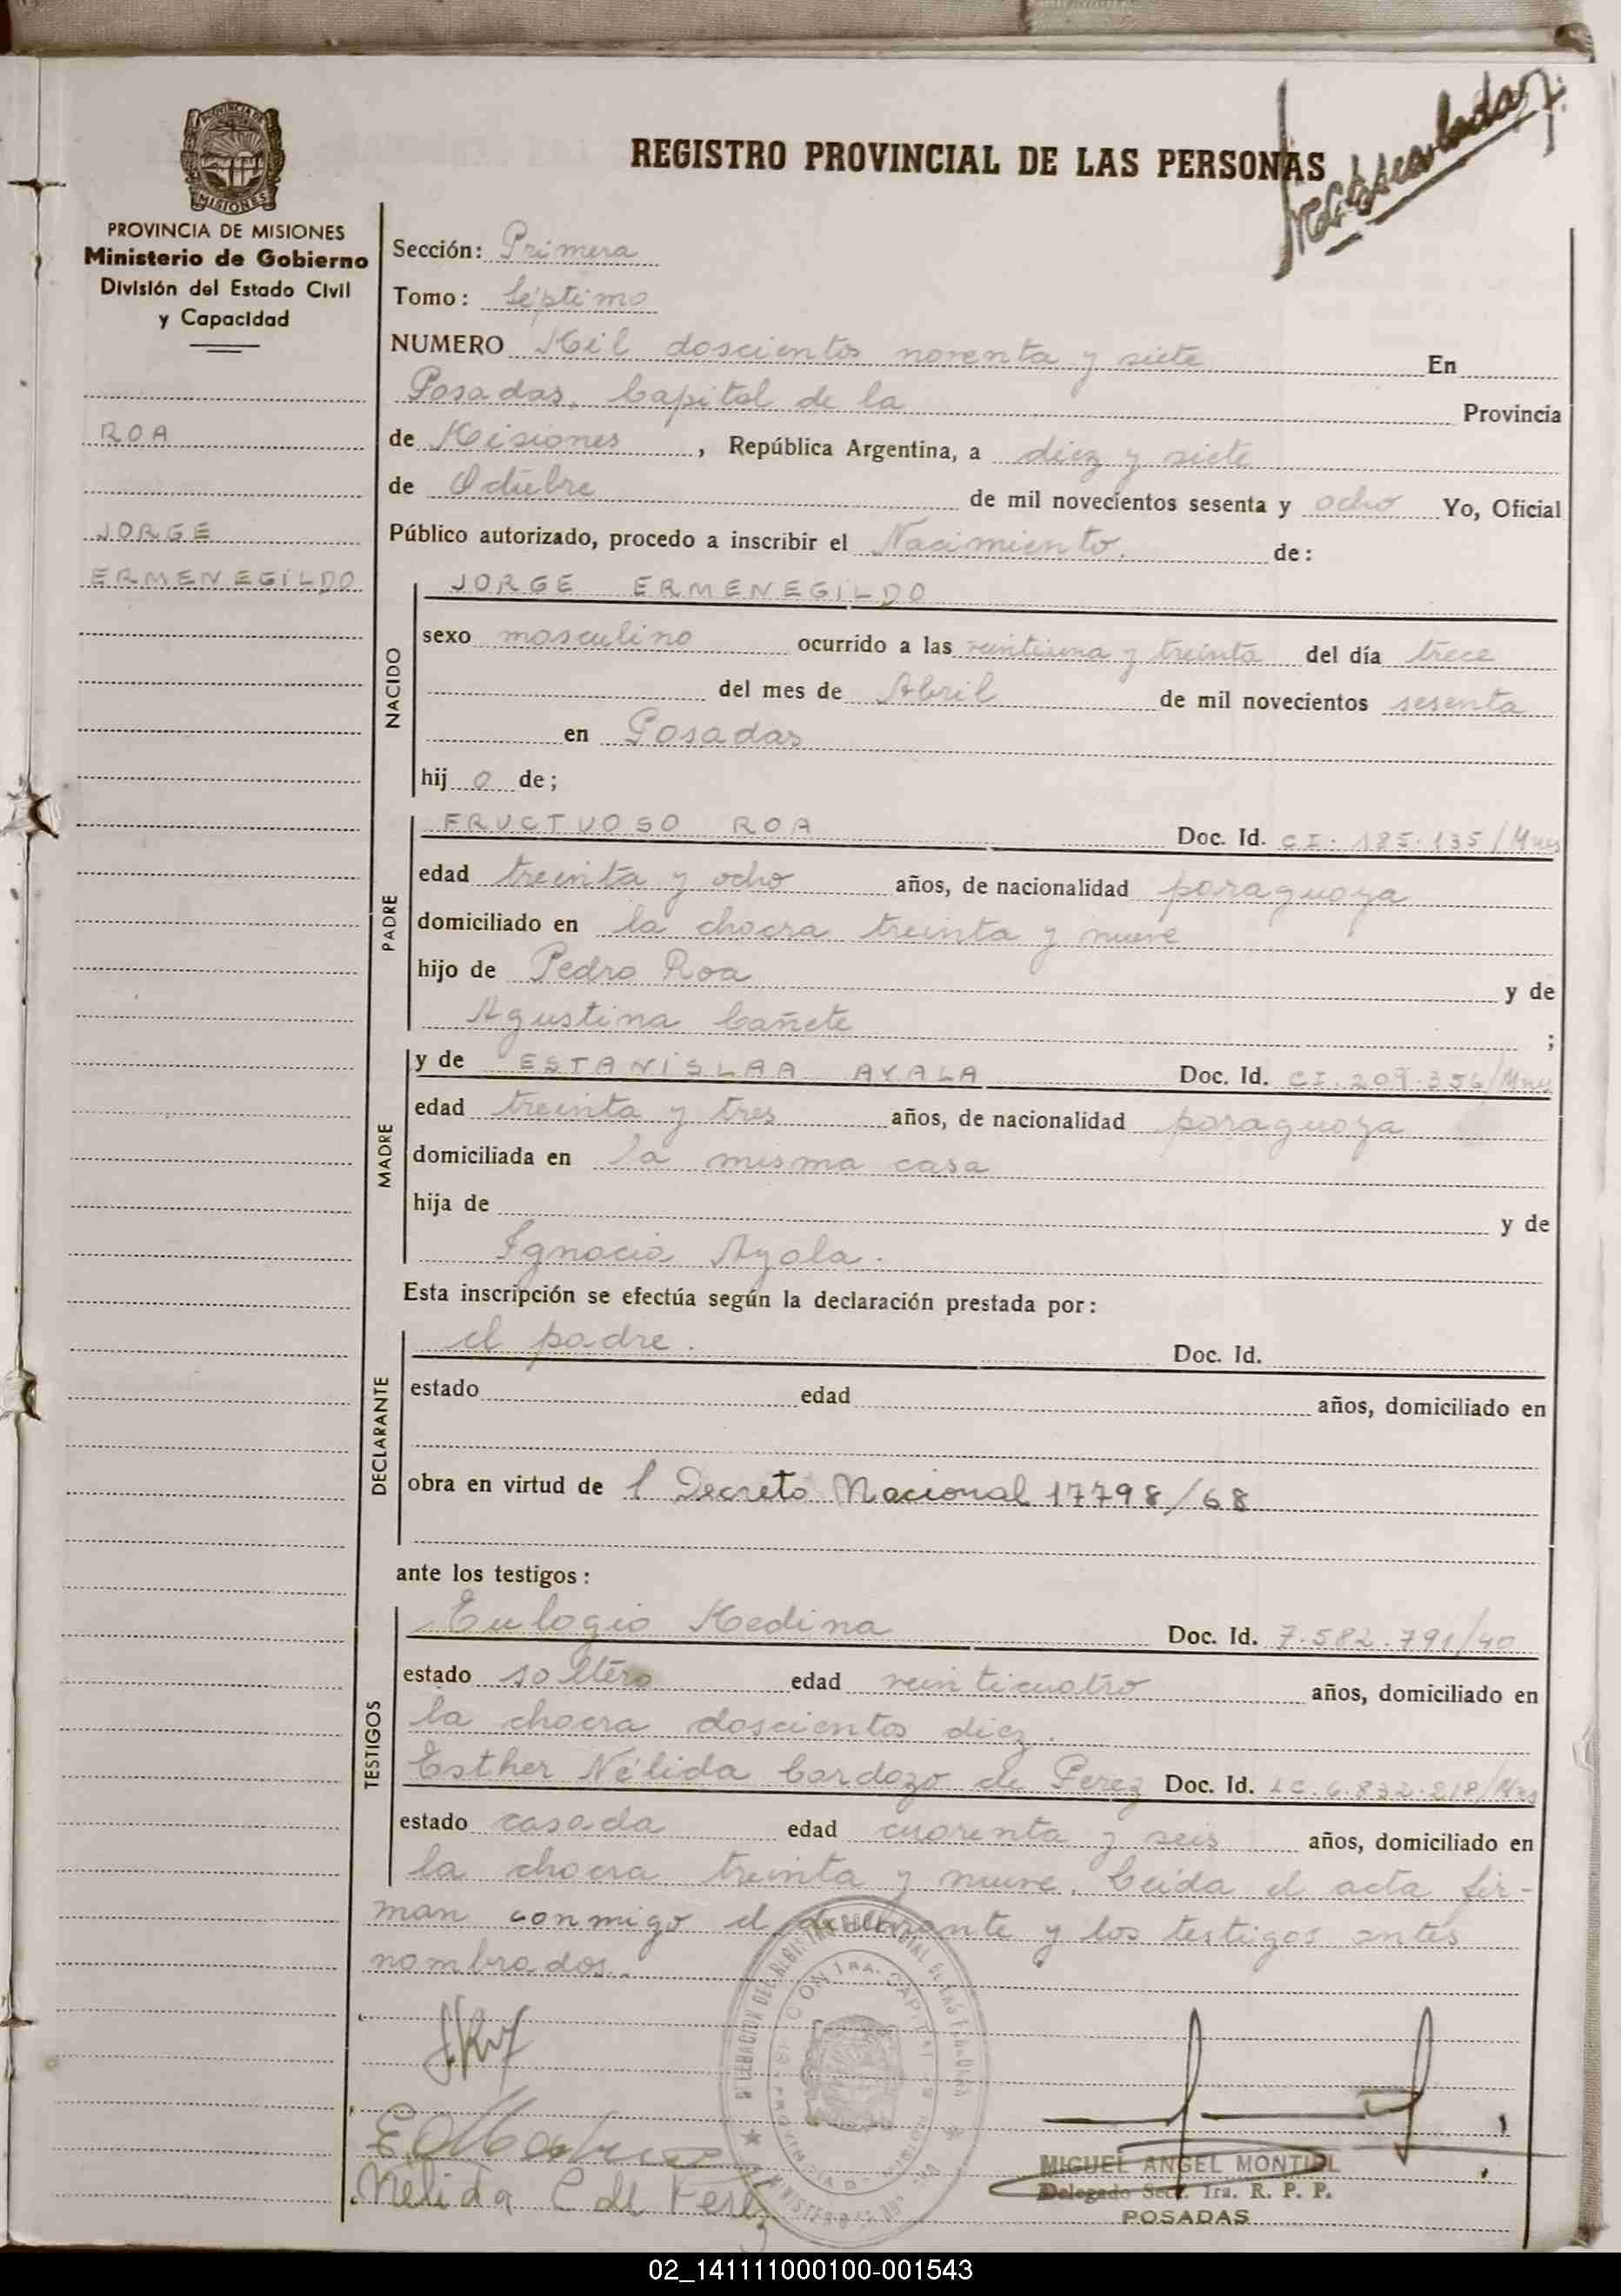 REGISTRO PROVINCIAL DE LAS PERSONAS
PROVINCIA DE MISIONES
Ministerio de Gobierno
División del Estado Civil
y Capacidad
ROA
JORGE
ERMENEGILDO
Sección: Primera
Tomo: Séptimo
NUMERO Mil doscientos noventa y siete En
Posadas, Capital de la Provincia
de Misiones, República Argentina, a diez y siete
de Octubre de mil novecientos sesenta y ocho Yo, Oficial
Público autorizado, procedo a inscribir el Nacimiento. de:
NACIDO
JORGE ERMENEGILDO
sexo masculino ocurrido a las veintiuna y treinta del día trece
del mes de Abril de mil novecientos sesenta
en Posadas
hij o de;
PADRE
FRUCTUOSO ROA Doc. Id. CI. 185.135/Mnes
edad treinta y ocho años, de nacionalidad paraguaya
domiciliado en la chacra treinta y nueve
hijo de Pedro Roa y de
Agustina Cañete ;
MADRE
y de ESTANISLAA AYALA Doc. Id. CI. 209.356/Mnes
edad treinta y tres años, de nacionalidad paraguaya
domiciliada en la misma casa
hija de y de
Ignacia Ayala.
Esta inscripción se efectúa según la declaración prestada por:
DECLARANTE
el padre. Doc. Id.
estado edad años, domiciliado en
obra en virtud de l Decreto Nacional 17798/68
ante los testigos:
TESTIGOS
Eulogio Medina Doc. Id. 7.582.791/40
estado soltero edad veinticuatro años, domiciliado en
la chacra doscientos diez.
Esther Nélida Cardozo de Perez Doc. Id. LC. 6.832.218/Mnes
estado casada edad cuarenta y seis años, domiciliado en
la chacra treinta y nueve. Leída el acta fir-
man conmigo el declarante y los testigos antes
nombrados.
Nélida C de Perez
MIGUEL ANGEL MONTIEL
Delegado Secc. 1ra. R. P. P.
POSADAS
02_141111000100-001543